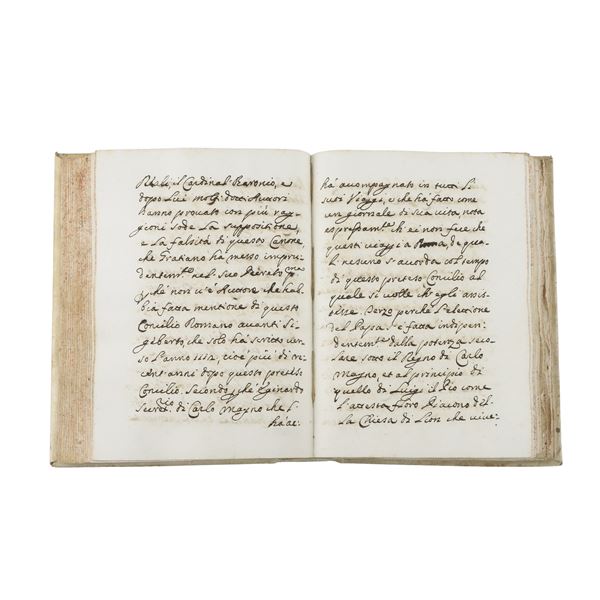 il Cardinal Baronio, e
dopo Lui molti dotti Auttori
hanno prouato con più rag-
gioni sode La suppositione,
e La falsità di questo Canone,
che Gratiano hà messo impru-
dentem.te nel Suo Decreto
che non u'è Auttore che hab-
bia fatta mentione di questo
Concilio Romano auanti Si-
geberto, che solo hà scritto uer-
so l'anno 1112, cioè più di
cent'anni dopo questo preteso
Concilio. Secondo, che Eginardo
Secret.rio di Carlo Magno che l'
hà ac:
hà accompagnato in tutti li
suoi Viaggi, e che hà fatto come
un giornale di Sua uita, nota
espressam.te ch'ei non fece che
questi uiaggi a Roma, de qua-
li nesuno s'accorda col tempo
di questo preteso Concilio al
quale si uolle ch'egli assis-
tesse. Terzo perche l'elettione
del Papa s'è fatta indipen-
dentem.te dalla potenza seco-
lare sotto il Regno di Carlo
Magno, et al principio di
quello di Luigi il Pio come
l'attesta floro Diacono del-
la Chiesa di Lion che uiue: